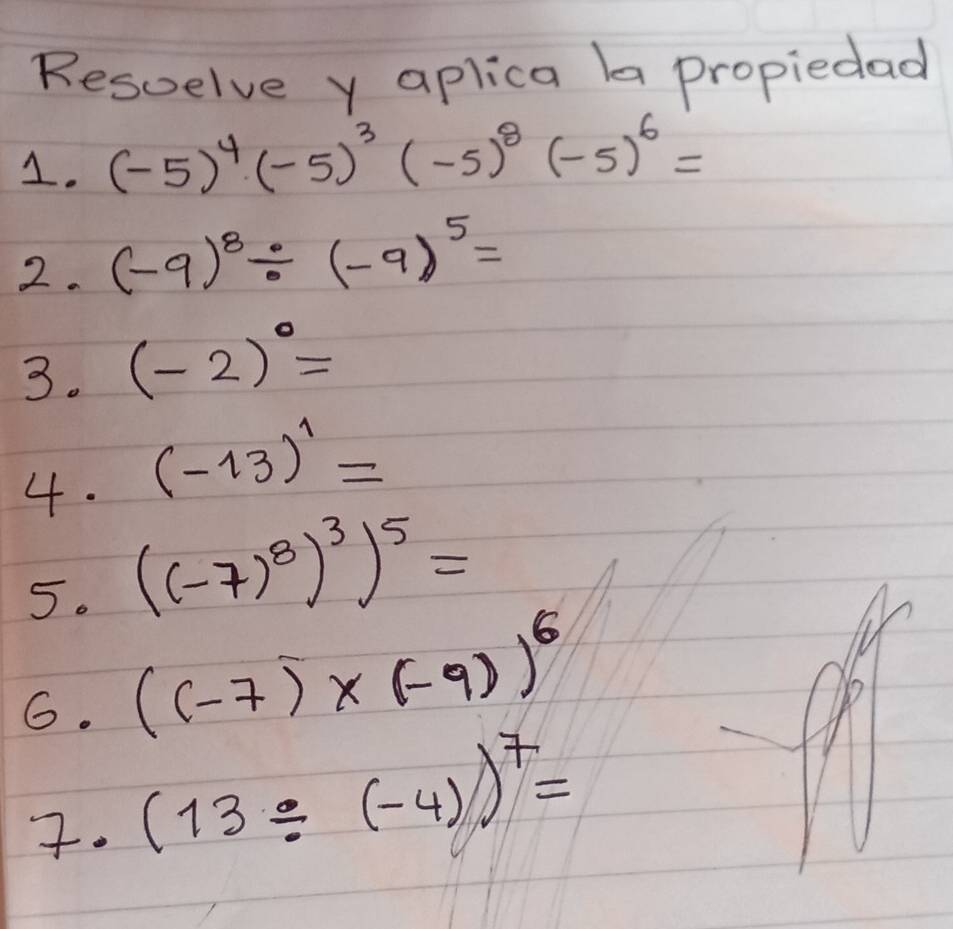 Resuelve y aplica la propiedad
1. (-5)⁴·(-5)³ (-5)⁸ (-5)⁶ =
2. (-9)⁸ ÷ (-9)⁵ =
3. (-2)⁰ =
4. (-13)¹ =
5. ((-7)⁸)³)⁵ =
6. ((-7) × (-9))⁶
7. (13 ÷ (-4))⁷ =